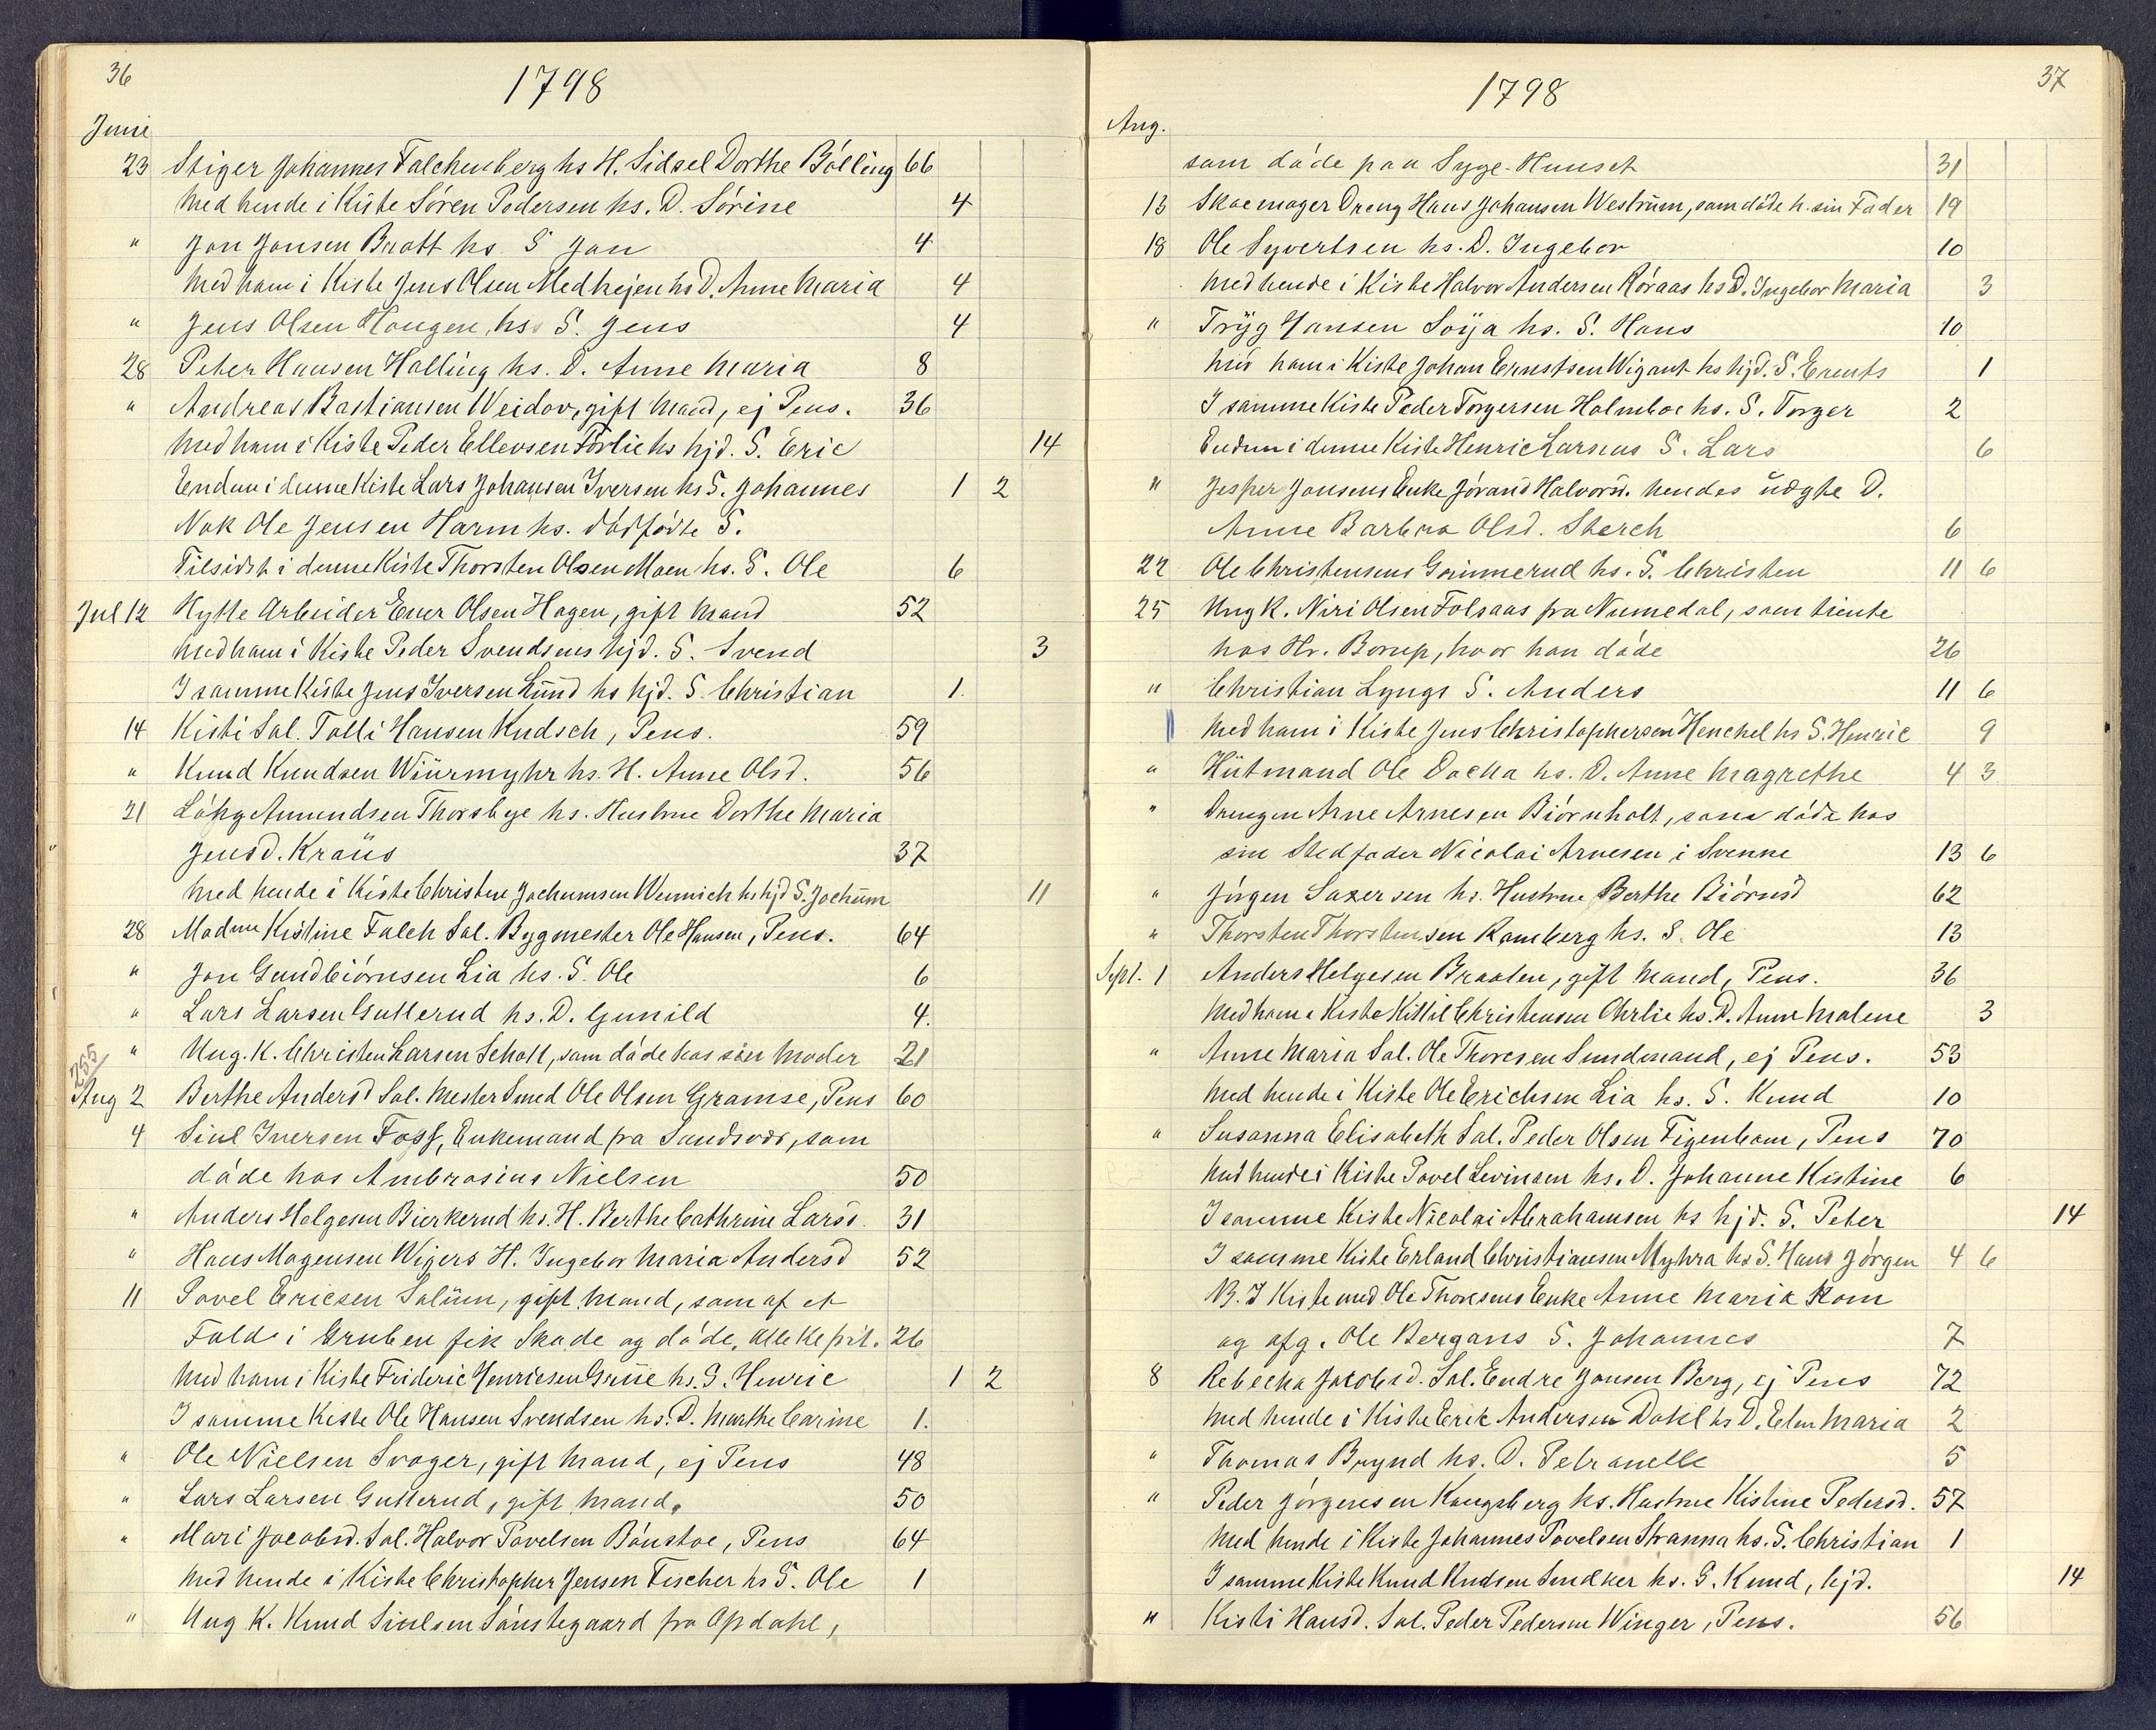 36
1798
Juni
23 Stiger Johannes Falchenberg hs H. Sidsel Dorthe Bölling 66
Med hende i Kiste Sören Pedersen hs. D. Sörine 4
" Jon Jonsen Bratt hs S Jon 4
Med ham i Kiste Jens Olsen Medhejen hs D. Anne Maria 4
" Jens Olsen Hougen hs. S. Jens 4
28 Peter Hansen Halling hs. D. Anne Maria 8
" Andreas Bastiansen Weidov, gift Mand, ej Pens. 36
Med ham i Kiste Peder Ellevsen Förlie hs hjd. S. Eric 14
Endnu i denne Kiste Lars Johansen Iversen hs S. Johannes 1 2
Nok Ole Jensen Harm hs. dödfödte S.
Tilsidst i denne Kiste Thorsten Olsen Moen hs. S. Ole 6
Jul 12 Hytte Arbeider Ener Olsen Hagen, gift Mand 52
Med ham i Kiste Peder Svendsens hjd. S. Svend 3
I samme Kiste Jens Iversen Lund hs hjd. S. Christian 1.
14 Kisti Sal. Tolli Hansen Kudsch, Pens. 59
" Knud Knudsen Würmyhr hs. H. Anne Olsd. 56
21 Löhg Amundsen Thorsbye hs. Hustrue Dorthe Maria
Jensd. Kraüs 37
Med hende i Kiste Christen Jochumsen Wennich hs hjd S. Jochum 11
28 Madme Kistine Falch Sal. Bygmester Ole Hansen, Pens. 64
" Jon Gundbiörnsen Lia hs. S. Ole 6
" Lars Larsen Gutterud hs. D. Gunild 4.
" Ung. K. Christen Larsen Schott, som döde hos sin Moder 21
255
Aug 2 Berthe Andersd Sal. Mester Smed Ole Olsen Gramse, Pens 60
4 Siul Iversen Foss, Enkemand fra Sandsvær, som
döde hos Ambrosius Nielsen 50
" Anders Helgesen Bierkerud hs. H. Berthe Cathrine Larsd. 31
" Hans Mogensen Wigers H. Ingebor Maria Andersd 52
11 Povel Ericsen Salüm, gift Mand, som af et
Fald i Gruben fik Skade og döde, 26
Med ham i Kiste Frideric Henricsen Grüe hs. S. Henric 1 2
I samme Kiste Ole Hansen Svendsen hs. D. Marthe Carine 1.
" Ole Nielsen Svager, gift Mand, ej Pens 48
" Lars Larsen Gutterud, gift Mand. 50
" Mari Jacobsd. Sal. Halvor Povelsen Bönstoe, Pens 64
Med hende i Kiste Christopher Jensen Fischer hs S. Ole 1
" Ung K. Knud Siulsen Sönstegaard fra Opdahl,
37
1798
Aug.
som döde paa Syge-Huuset 31
13 Skoemager Dreng Hans Johansen Westrum, som döde h. sin Fader 19
18 Ole Syvertsen hs. D. Ingebor 10
Med hende i Kiste Halvor Andersen Röraas hs D. Ingebor Maria 3
" Tryg Hansen Soya hs. S. Hans 10
Med ham i Kiste Johan Ernstsen Wigant hs hjd. S. Erents 1
I samme Kiste Peder Torgersen Holmboe hs. S. Torger 2
Endnu i denne Kiste Henric Larsens S. Lars 6
" Jesper Jonsens Enke Jörand Halvorsd. hendes uægte D.
Anne Barbra Olsd. Sterch 6
22 Ole Christensens Grimmerud hs. S. Christen 11 6
25 Ung K. Niri Olsen Folsaas fra Numedal, som tiente
hos Hr. Borup, hvor han döde 26
" Christian Lyngs S. Anders 11 6
Med ham i Kiste Jens Christophersen Henchel hs S. Henric 9
" Hütmand Ole Docka hs. D. Anne Magrethe 4 3
" Drengen Arne Arnesen Biörnholt, som döde hos
sin Stedfader Nicolai Arnesen i Svenne 13 6
" Jörgen Saxersen hs. Hustrue Berthe Biörnsd 62
" Thorsten Thorstensen Ramberg hs. S. Ole 13
Sept. 1 Anders Helgesen Braaten, gift Mand, Pens. 36
Med ham i Kiste Kittil Christensen Ohrlie hs. D. Anne Malene 3
" Anne Maria Sal. Ole Thoresen Sundmand, ej Pens. 53
Med hende i Kiste Ole Erichsen Lia hs. S. Knud 10
" Susanna Elisabeth Sal. Peder Olsen Figenbom, Pens 70
Med hende i Kiste Povel Levinsen hs. D. Johanne Kistine 6
I samme Kiste Nicolai Abrahamsen hs hjd. S. Peter 14
I samme Kiste Erland Christiansen Myhra hs S. Hans Jörgen 4 6
N. I Kiste med Ole Thoresens Enke Anne Maria kom
og afg. Ole Bergans S. Johannes 7
8 Rebecka Jacobsd. Sal. Endre Jonsen Berg, ej Pens 72
Med hende i Kiste Erik Andersen Dahl hs D. Elen Maria 2
" Thomas Brynd hs. D. Petranelle 5
" Peder Jörgensen Kongsberg hs. Hustrue Kistine Pedersd. 57
Med hende i Kiste Johannes Povelsen Stranna hs. S. Christian 1
I samme Kiste Knud Knudsen Smedker hs. S. Knud, hjd. 14
" Kisti Hansd. Sal. Peder Pedersen Winger, Pens. 56